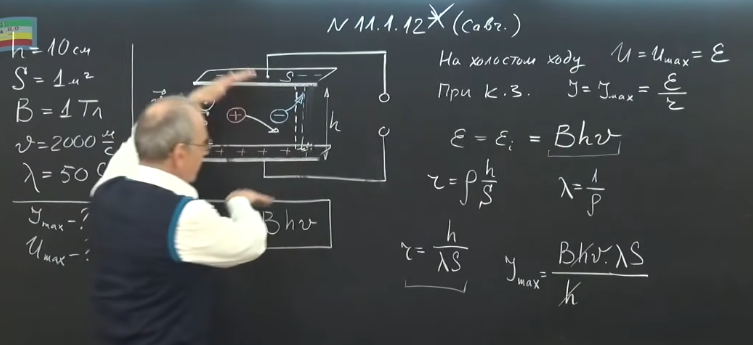 N 11.1.12* (Савч.)
h = 10 см
S = 1 м²
B = 1 Тл
v = 2000 м/с
λ = 50
J max - ?
U max - ?
- - S - -
+ -
h
+ + + + +
Bhv
На холостом ходу U = U max = ℰ
При К.З. J = J max = ℰ/r
ℰ = ℰ i = Bhv
r = ρ h/S λ = 1/ρ
r = h/λS J max = Bhv·λS/h